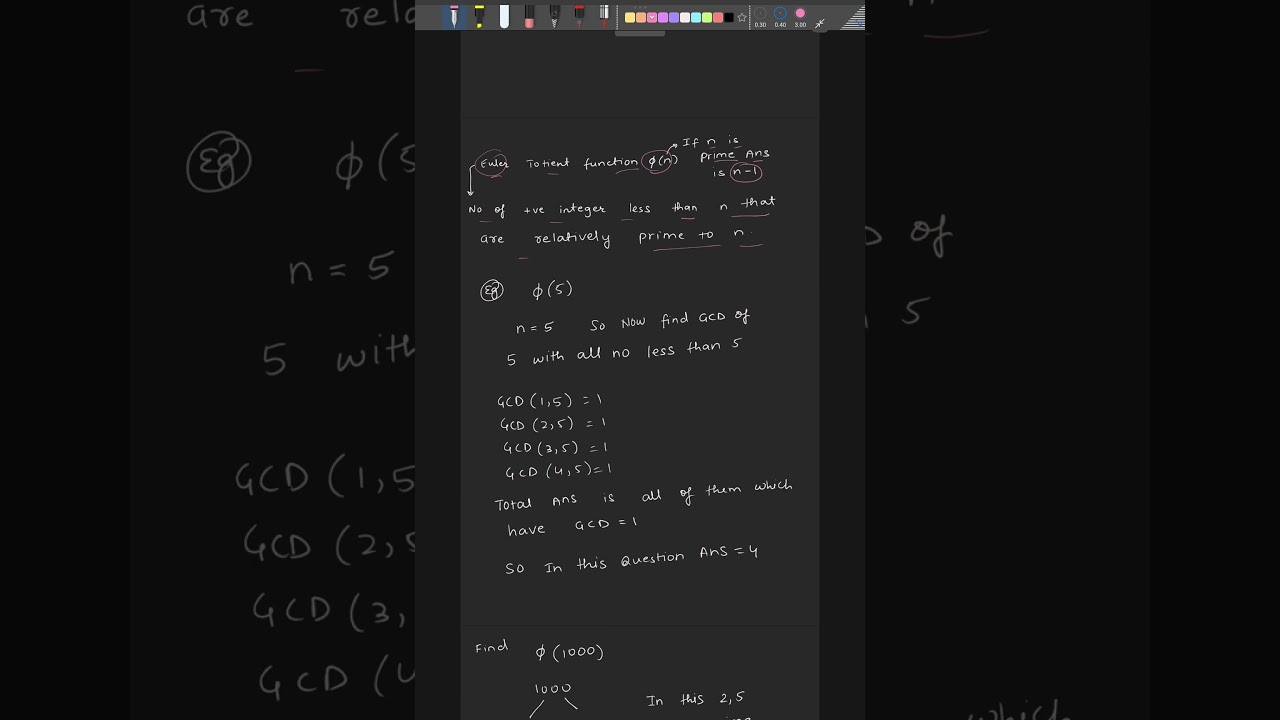 0.30 0.40 3.00
Euler Totient function φ(n)
If n is
Prime Ans
is n-1
No of +ve integer less than n that
are relatively prime to n.
Eg φ(5)
n = 5 So Now find GCD of
5 with all no less than 5
GCD (1,5) = 1
GCD (2,5) = 1
GCD (3,5) = 1
GCD (4,5) = 1
Total Ans is all of them which
have GCD = 1
So In this Question Ans = 4
Find φ(1000)
1000
In this 2,5